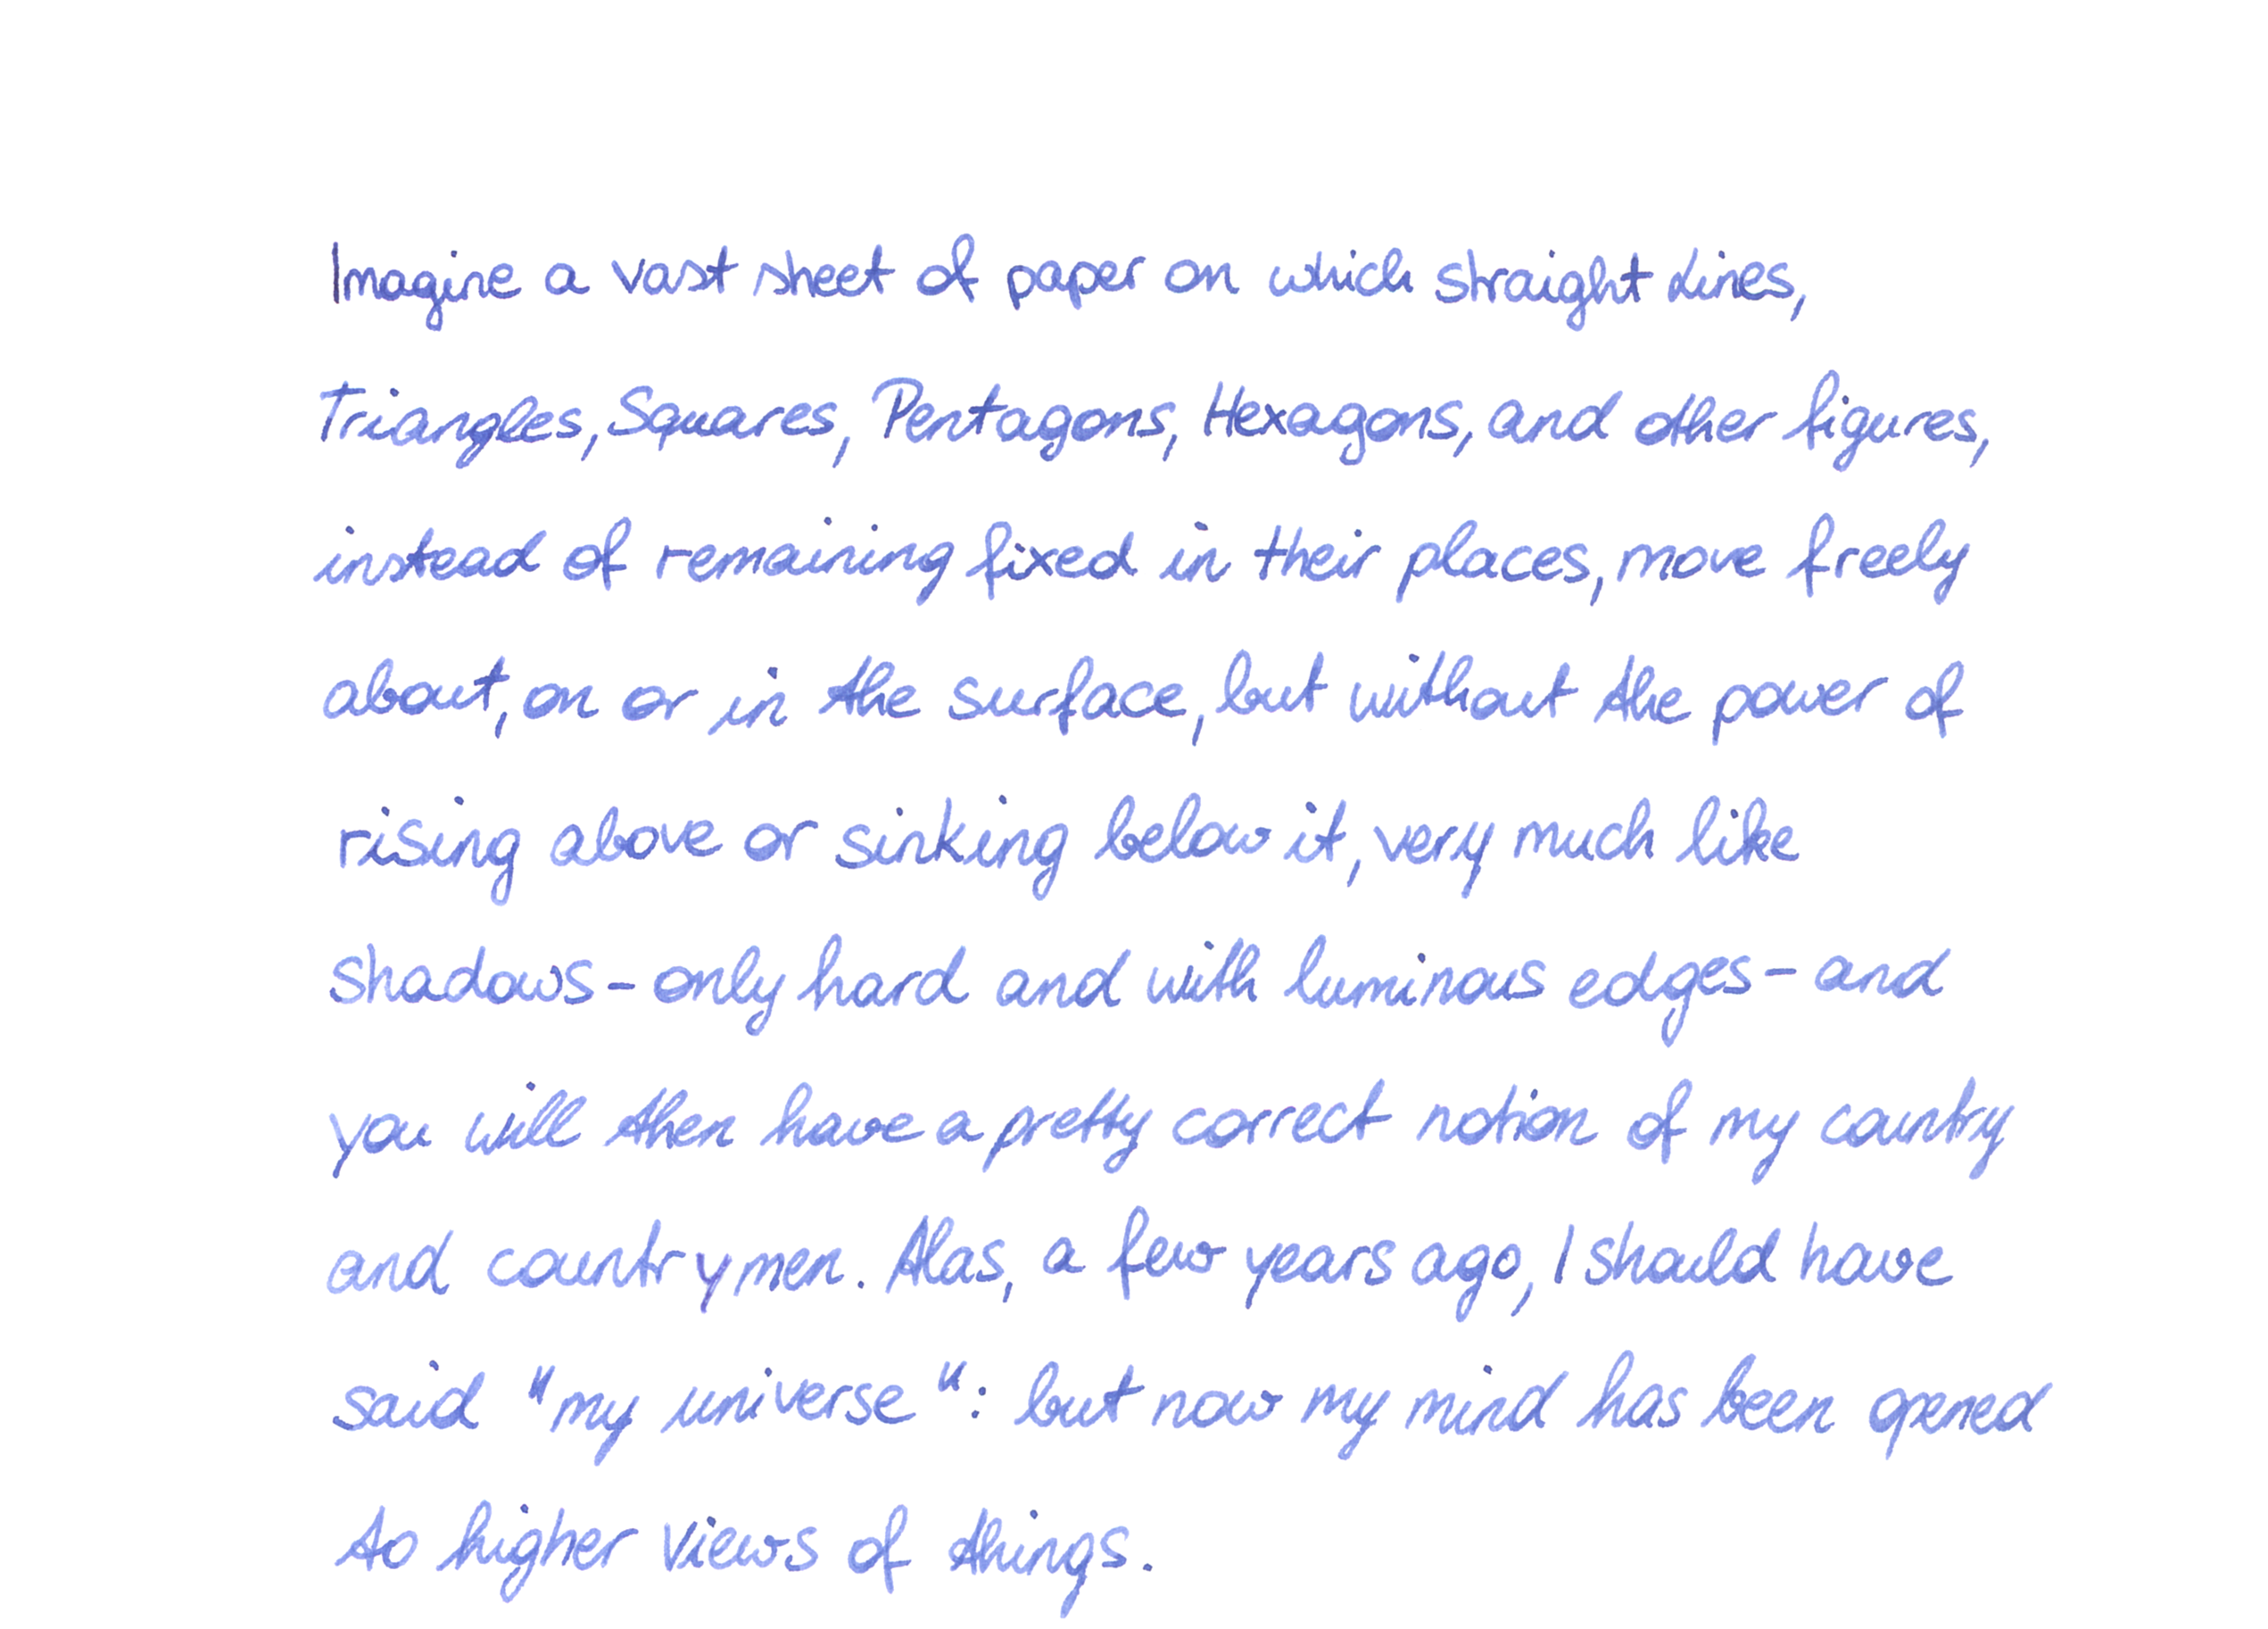 Imagine a vast sheet of paper on which straight Lines,
Triangles, Squares, Pentagons, Hexagons, and other figures,
instead of remaining fixed in their places, move freely
about, on or in the surface, but without the power of
rising above or sinking below it, very much like
shadows - only hard and with luminous edges - and
you will then have a pretty correct notion of my country
and countrymen. Alas, a few years ago, I should have
said "my universe": but now my mind has been opened
to higher views of things.